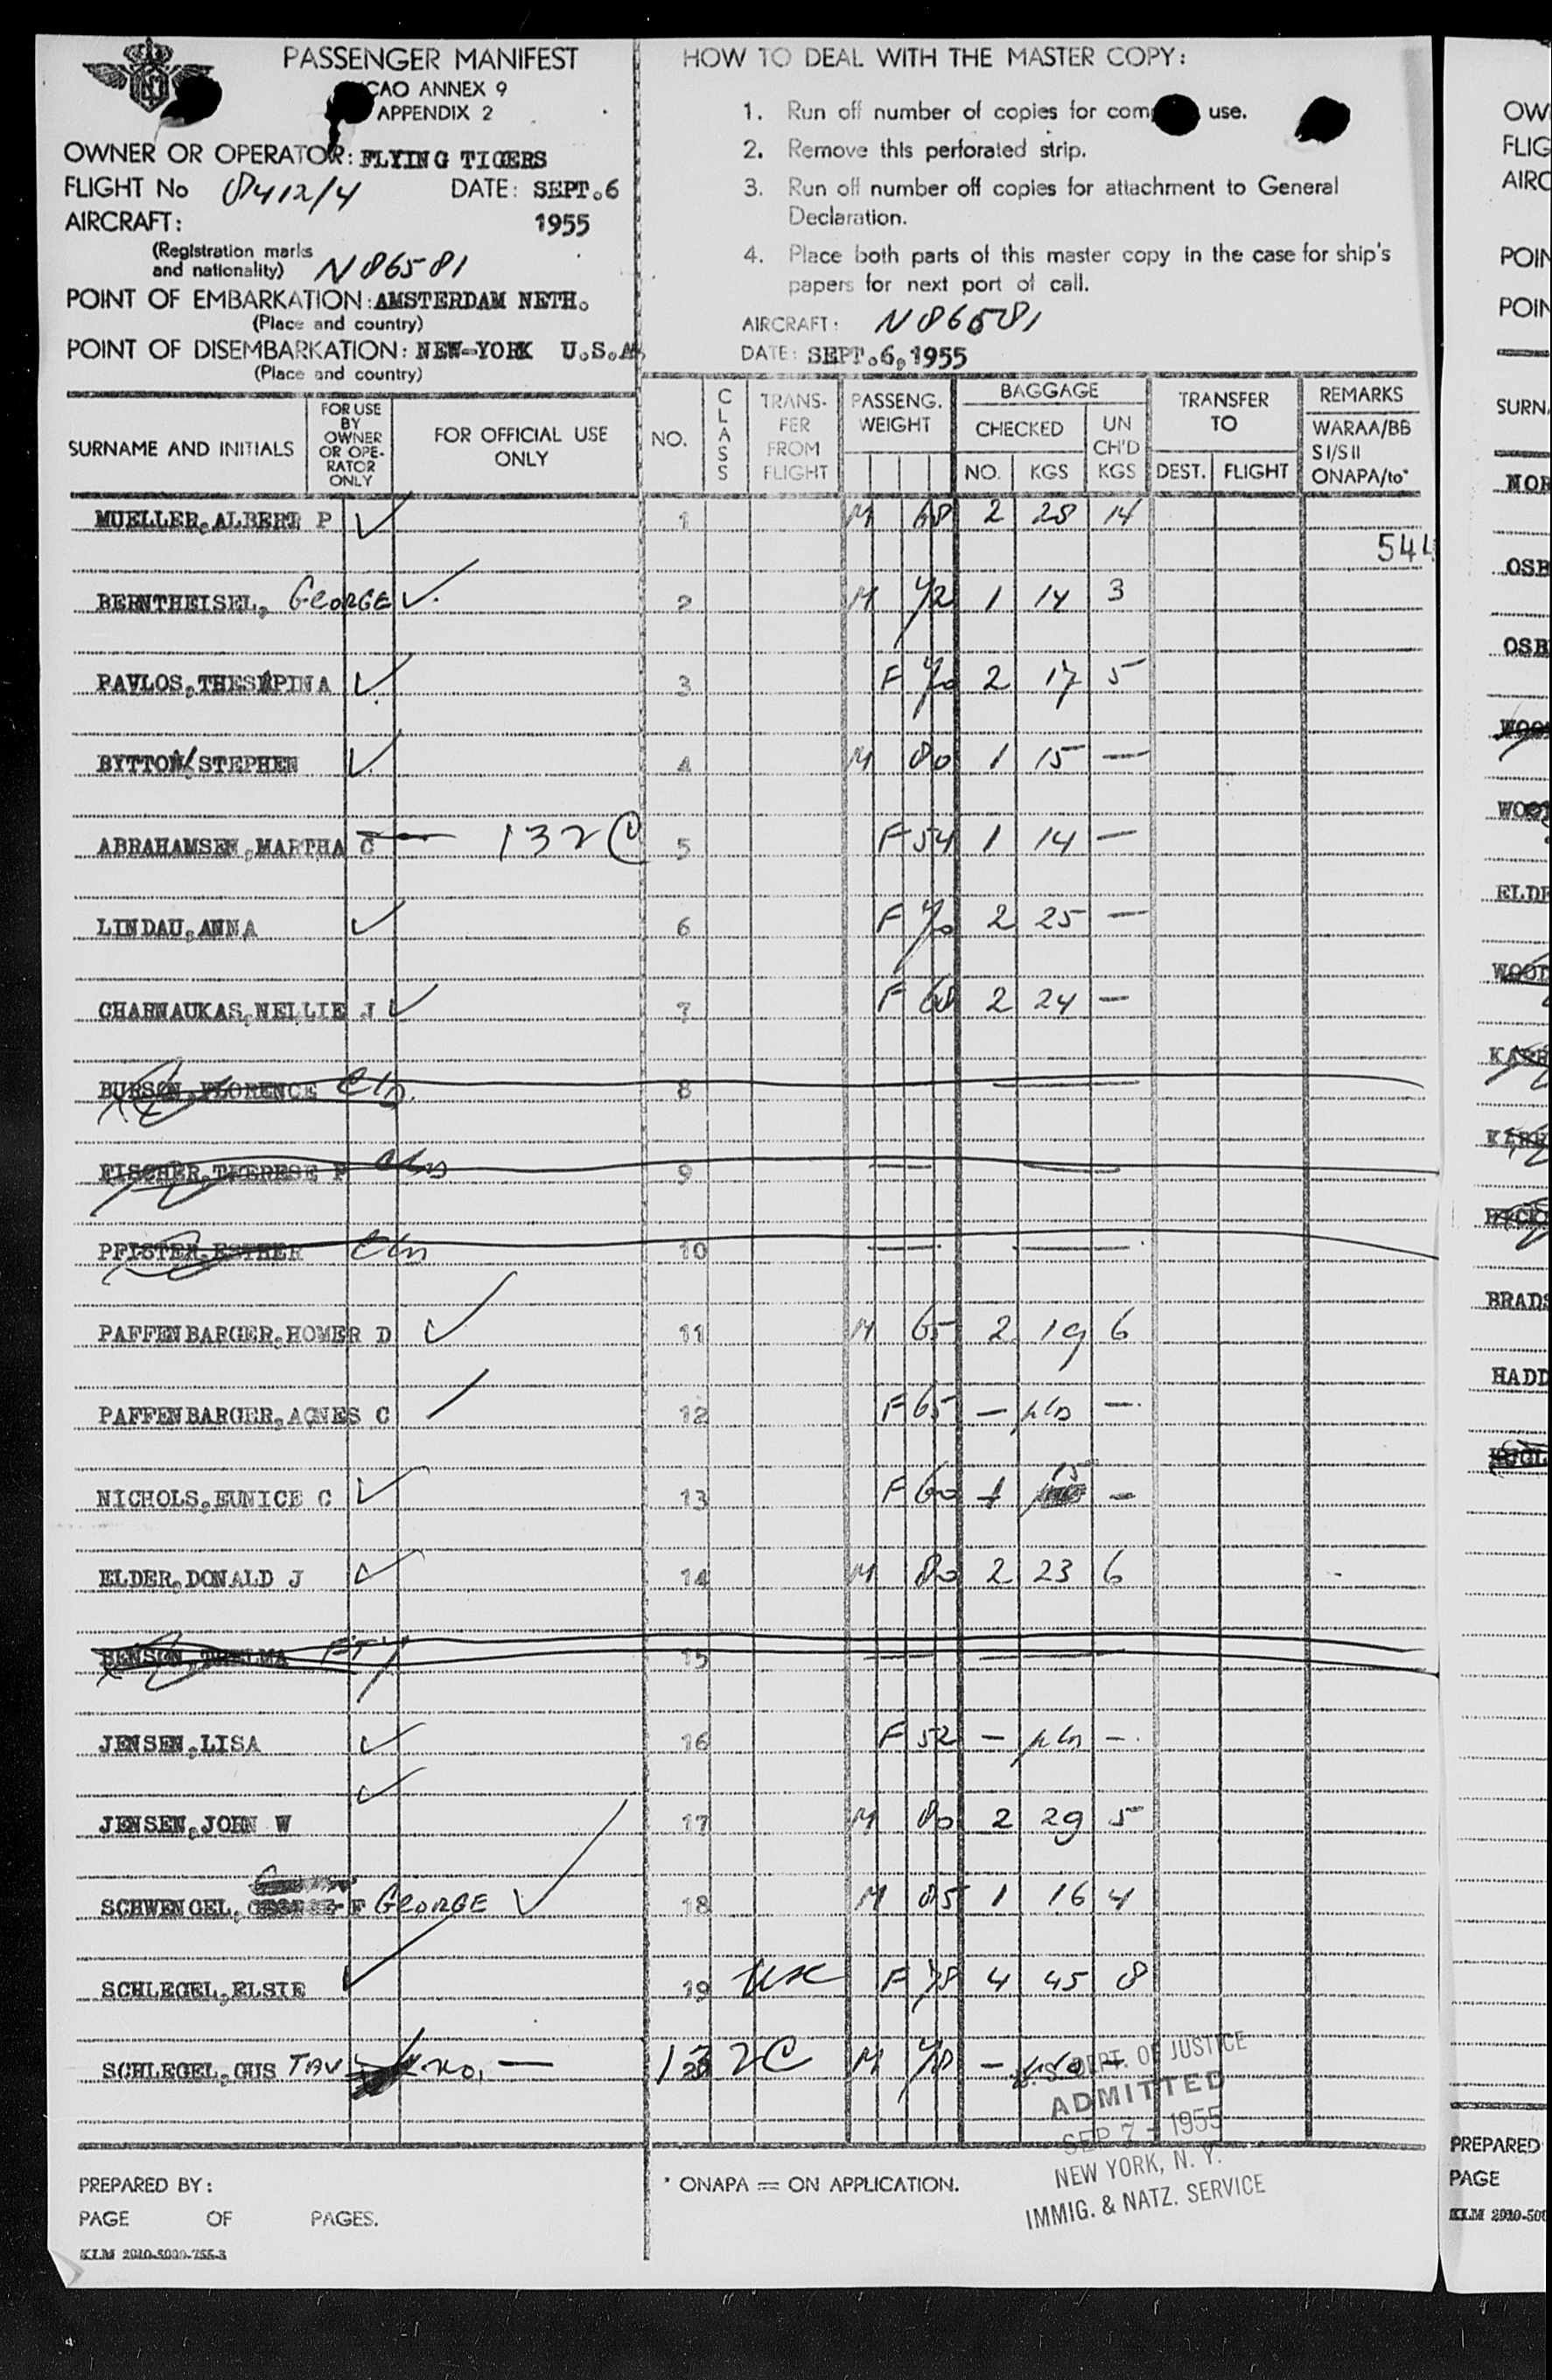 PASSENGER MANIFEST
ICAO ANNEX 9
APPENDIX 2
OWNER OR OPERATOR: FLYING TIGERS
FLIGHT No 8412/4 DATE: SEPT.6
AIRCRAFT: 1955
(Registration marks
and nationality) N86581
POINT OF EMBARKATION: AMSTERDAM NETH.
(Place and country)
POINT OF DISEMBARKATION: NEW-YORK U.S.A.
(Place and country)
HOW TO DEAL WITH THE MASTER COPY:
1. Run off number of copies for use.
2. Remove this perforated strip.
3. Run off number off copies for attachment to General
Declaration.
4. Place both parts of this master copy in the case for ship's
papers for next port of call.
AIRCRAFT: N86581
DATE: SEPT.6,1955
SURNAME AND INITIALS
FOR USE
BY
OWNER
OR OPE-
RATOR
ONLY
FOR OFFICIAL USE
ONLY
NO.
CLASS
TRANS-
FER
FROM
FLIGHT
PASSENG.
WEIGHT
BAGGAGE
CHECKED
NO. KGS
UN
CH'D
KGS
TRANSFER
TO
DEST. FLIGHT
REMARKS
WARAA/BB
SI/SII
ONAPA/to*
MUELLER,ALBERT P 1 M 68 2 28 14
544
BERNTHEISEL, GEORGE 2 M 72 1 14 3
PAVLOS,THESPINA 3 F 70 2 17 5
BYTTOW,STEPHEN 4 M 80 1 15 —
ABRAHAMSEN,MARTHA C — 132C 5 F 54 1 14 —
LINDAU,ANNA 6 F 70 2 25 —
CHARNAUKAS,NELLIE J 7 F 68 2 24 —
BURSON,FLORENCE cln 8
FISCHER,THERESE P cln 9
PFISTER,ESTHER cln 10
PAFFENBARGER,HOMER D 11 M 65 2 19 6
PAFFENBARGER,AGNES C 12 F 65 — pln —
NICHOLS,EUNICE C 13 F 60 1 15 —
ELDER,DONALD J 14 M 80 2 23 6
BENSON,THELMA 15
JENSEN,LISA 16 F 52 — pln —
JENSEN,JOHN W 17 M 80 2 29 5
SCHWENGEL, F GEORGE 18 M 85 1 16 4
SCHLEGEL,ELSIE 19 usc F 78 4 45 8
SCHLEGEL,GUS TAV no. — 20 132C M 78 —
U.S. DEPT. OF JUSTICE
ADMITTED
SEP 7 - 1955
NEW YORK, N. Y.
IMMIG. & NATZ. SERVICE
PREPARED BY:
PAGE OF PAGES.
KLM 2910-5000-755-3
* ONAPA = ON APPLICATION.
OW
FLIG
AIRC
POIN
POIN
SURN
NOR
OSB
OSB
WOO
WOO
ELDE
WOOD
KARR
KARR
BRADS
HADD
PREPARED
PAGE
KLM 2910-500